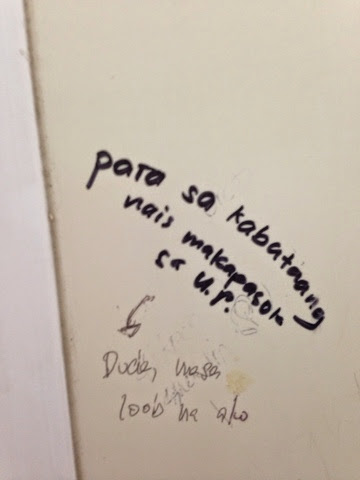 para sa kabataang
nais makapasok
sa U.P.
Dude, nasa
loob na ako